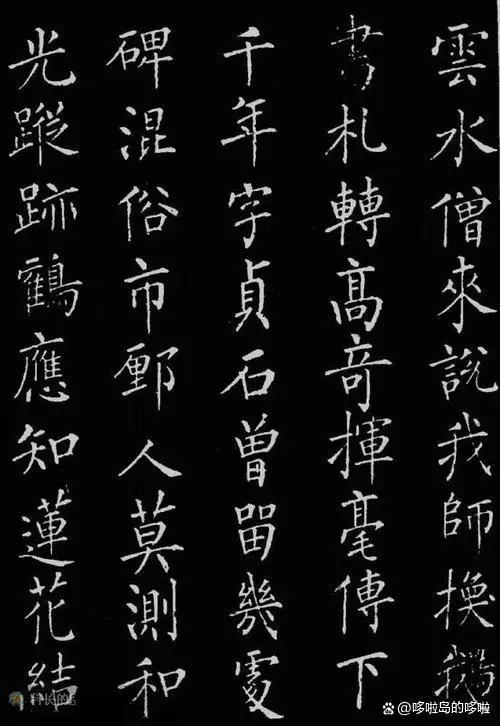 雲水僧來說我師換鵝
書札轉髙竒揮毫傳下
千年字貞石曾留幾處
碑混俗市鄽人莫測和
光蹤跡鶴應知蓮花結
@哆啦岛的哆啦